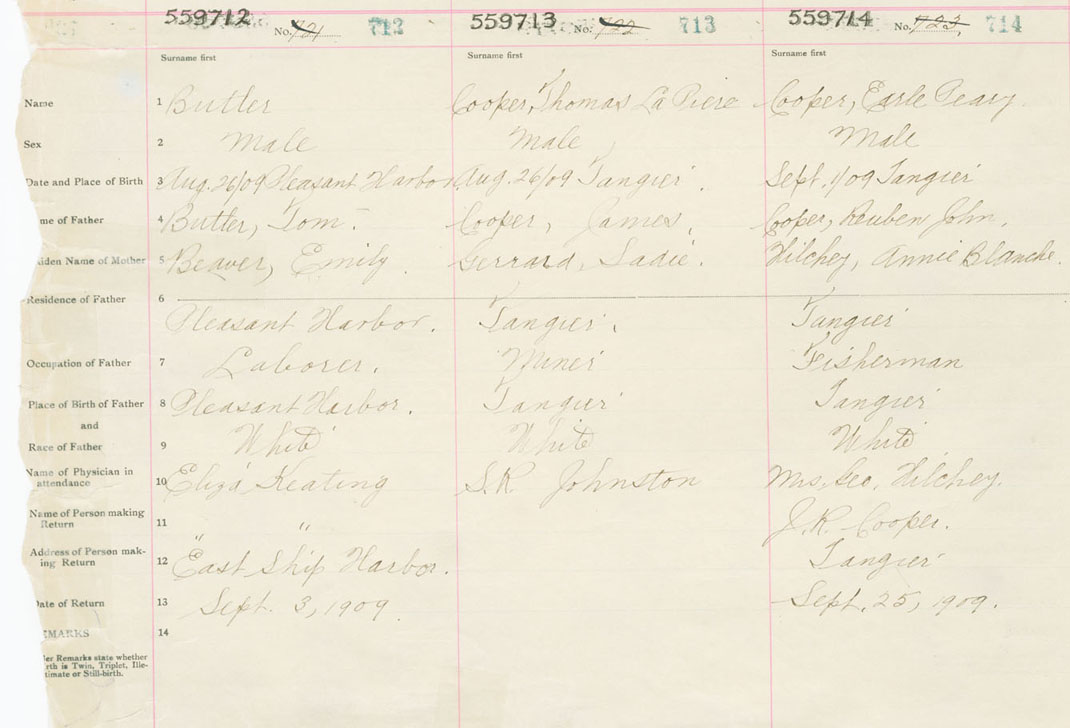 559712 No. 721 712 559713 No. 722 713 559714 No. 723, 714
Surname first Surname first Surname first
Name 1 Butler Cooper, Thomas La Piere Cooper, Earle Peary
Sex 2 Male Male Male
Date and Place of Birth 3 Aug. 26/09 Pleasant Harbor Aug. 26/09 Tangier. Sept. 1/09 Tangier
me of Father 4 Butler, Tom. Cooper, James. Cooper, Reuben John.
iden Name of Mother 5 Beaver, Emily. Gerrard, Sadie. Hilchey, Annie Blanche.
Residence of Father 6
Pleasant Harbor. Tangier. Tangier
Occupation of Father 7 Laborer. Miner Fisherman
Place of Birth of Father 8 Pleasant Harbor. Tangier Tangier
and
Race of Father 9 White White White
Name of Physician in
attendance 10 Eliza Keating S.R. Johnston Mrs. Geo. Hilchey.
Name of Person making
Return 11 " " J.R. Cooper.
Address of Person mak-
ing Return 12 East Ship Harbor. Tangier
Date of Return 13 Sept. 3, 1909 Sept. 25, 1909.
EMARKS 14
der Remarks state whether
rth is Twin, Triplet, Ille-
timate or Still-birth.